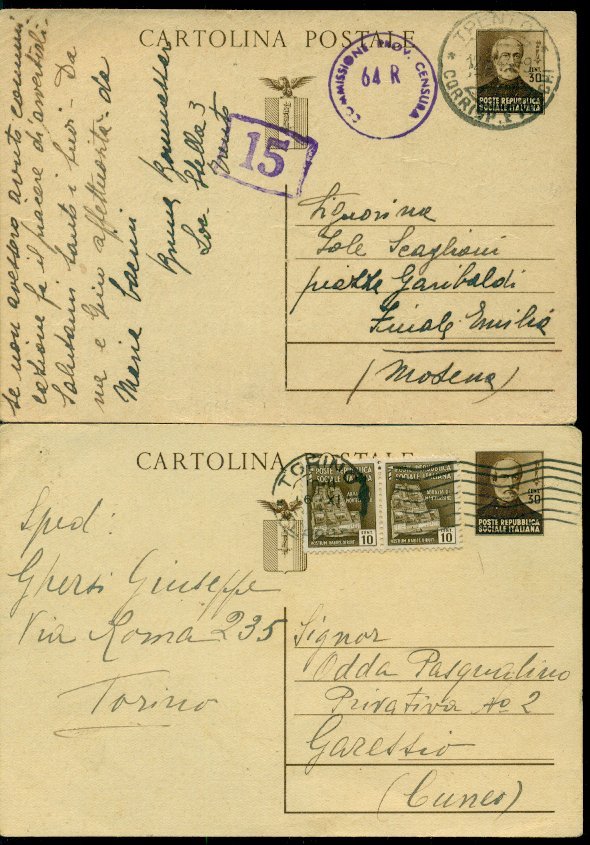 CARTOLINA POSTALE
TRENTO
CORRISP. E PACCHI
COMMISSIONE PROV. CENSURA
64 R
15
CENT 30
POSTE REPUBBLICA
SOCIALE ITALIANA
se non avessero avuto comuni-
cazione fa il piacere di avvertirli.
Salutami tanto i tuoi. Da
ma e Gino affettuosità da
Maria
Bruna
Loc. Stella 3
Trento
Signorina
Iole Scaglioni
piazza Garibaldi
Finale Emilia
(Modena)
CARTOLINA POSTALE
TORINO
POSTE REPUBBLICA
SOCIALE ITALIANA
ABBAZIA DI
MONTECASSINO
CENT 10
HOSTIUM RABIES DIRUIT
POSTE REPUBBLICA
SOCIALE ITALIANA
ABBAZIA DI
MONTECASSINO
CENT 10
HOSTIUM RABIES DIRUIT
CENT 30
POSTE REPUBBLICA
SOCIALE ITALIANA
Sped:
Ghersi Giuseppe
Via Roma 235
Torino
Signor
Odda Pasqualino
Privativa No 2
Garessio
(Cuneo)